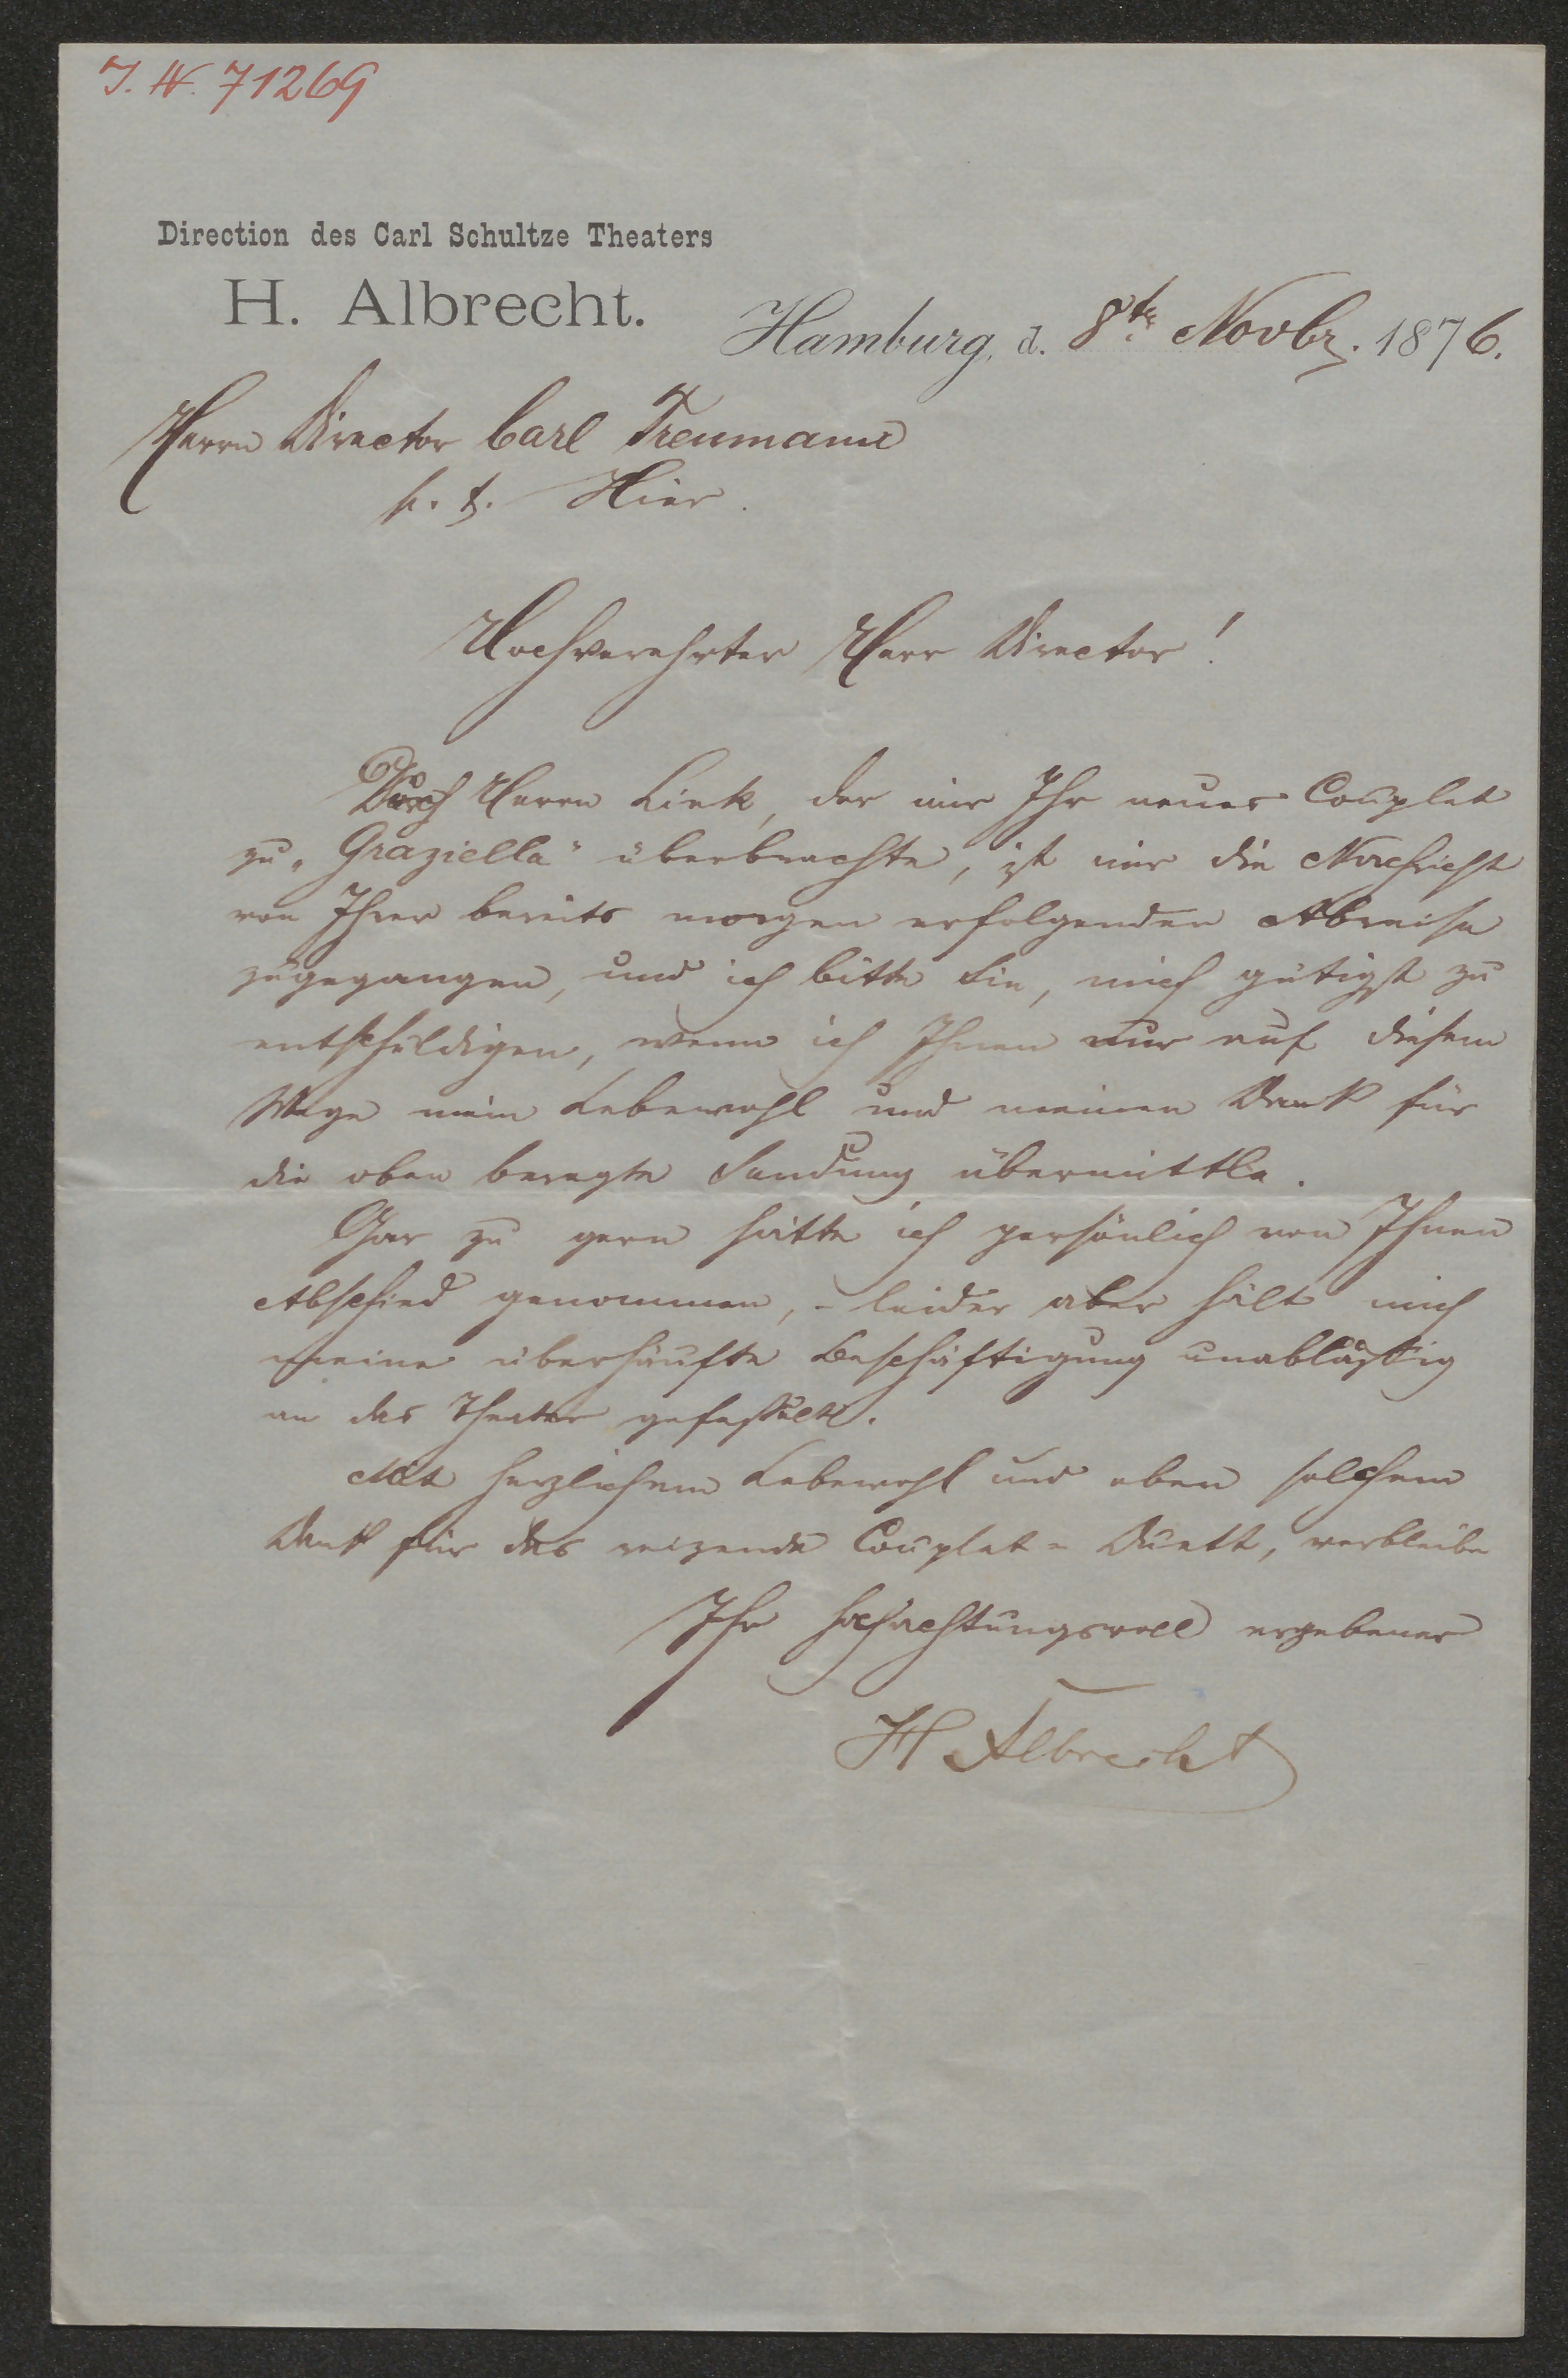 I. N. 71269
Direction des Carl Schultze Theaters
H. Albrecht.
Hamburg, d. 8te Novbr. 1876.
Herrn Director Carl Treumann
p. t. Hier.
Hochverehrter Herr Director!
Durch Herrn Link, der mir Ihr neues Couplet
zu „Graziella" überbrachte, ist mir die Nachricht
von Ihrer bereits morgen erfolgenden Abreise
zugegangen, und ich bitte Sie, mich gütigst zu
entschuldigen, wenn ich Ihnen nur auf diesem
Wege mein Lebewohl und meinen Dank für
die oben beregte Sendung übermittle.
Gar zu gern hätte ich persönlich von Ihnen
Abschied genommen, - leider aber hält mich
meine überhäufte Beschäftigung unablässig
an das Theater gefesselt.
Mit herzlichem Lebewohl und eben solchem
Dank für das reizende Couplet-Duett, verbleibe
Ihr hochachtungsvoll ergebener
H Albrecht